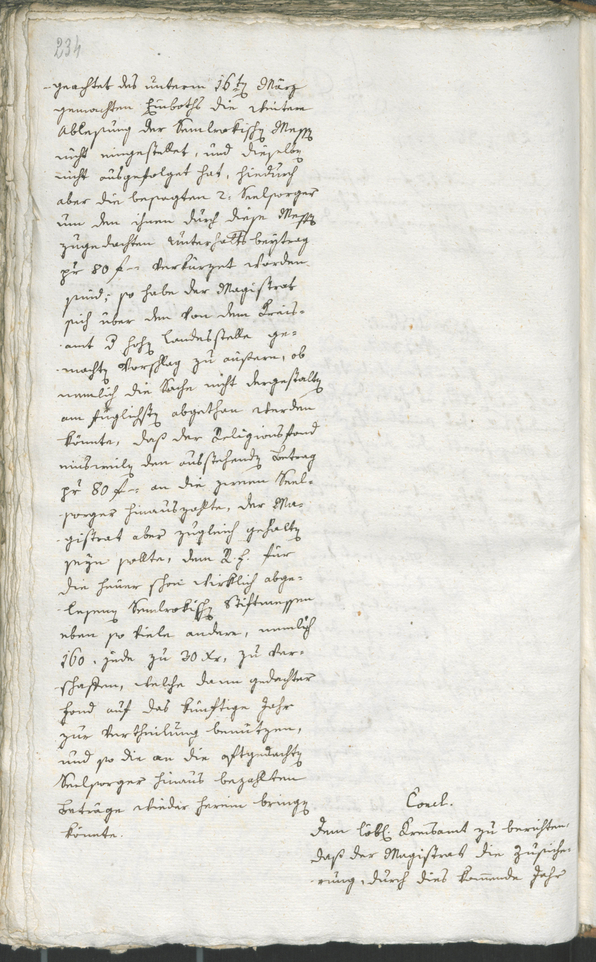 234
geachtet des unterm 16t März
gemachten Einboths die weitere
Ablesung der Messen
nicht eingestellet, und dieselbe
nicht ausgefolget hat, hiedurch
aber die besagten 2. Seelsorger
um den ihnen durch diese Messen
zugedachten Unterhaltsbeytrag
pr 80 f verkürzet worden
sind; so habe der Magistrat
sich über den von dem Kreis-
amt d hohen Landesstelle ge-
machten Vorschlag zu äußern, ob
nemlich die Sache nicht dergestalten
am füglichsten abgethan werden
könnte, daß der Religionsfond
einsweilen den ausstehenden Betrag
pr 80 f an die Seel-
sorger hinauszahlte, der Ma-
gistrat aber zugleich gehalten
seyn sollte, dem R. f. für
die heuer schon wirklich abge-
lesenen Stiftmessen
eben so viele andere, nemlich
160. jede zu 30 Xr, zu ver-
schaffen, welche dann gedachter
Fond auf das künftige Jahr
zur Vertheilung benützen,
und so die an die oftgedachten
Seelsorger hinaus bezahlten
Beträge wieder herein bringen
könnte.
Concl.
Dem löbl. Kreisamt zu berichten,
daß der Magistrat die Zusiche-
rung, durch dies kommende Jahr